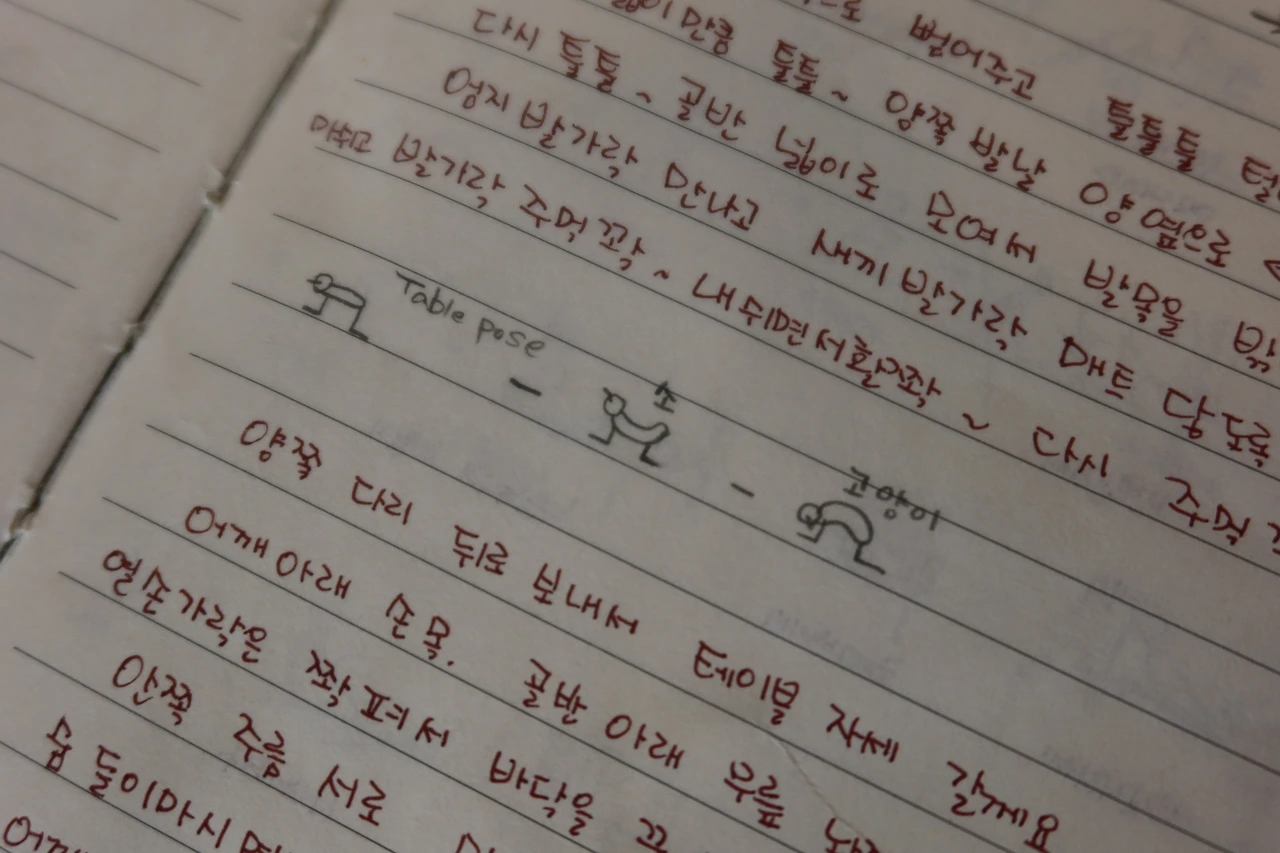 뻗어주고 툴툴툴
툴툴~ 양쪽 발날 양 옆으로
다시 툴툴~ 골반 넓이로 모여서 발목을
엄지 발가락 만나고 새끼 발가락 매트
마쉬고 발가락 주먹 꼬악~ 내쉬면서 활짝~ 다시 주먹
Table pose - 소 - 고양이
양쪽 다리 뒤로 보내서 테이블 자세 갈게요
어깨 아래 손목. 골반 아래 무릎
열 손가락은 쫙 펴서 바닥을
안쪽 주름 서로
숨 들이마시면